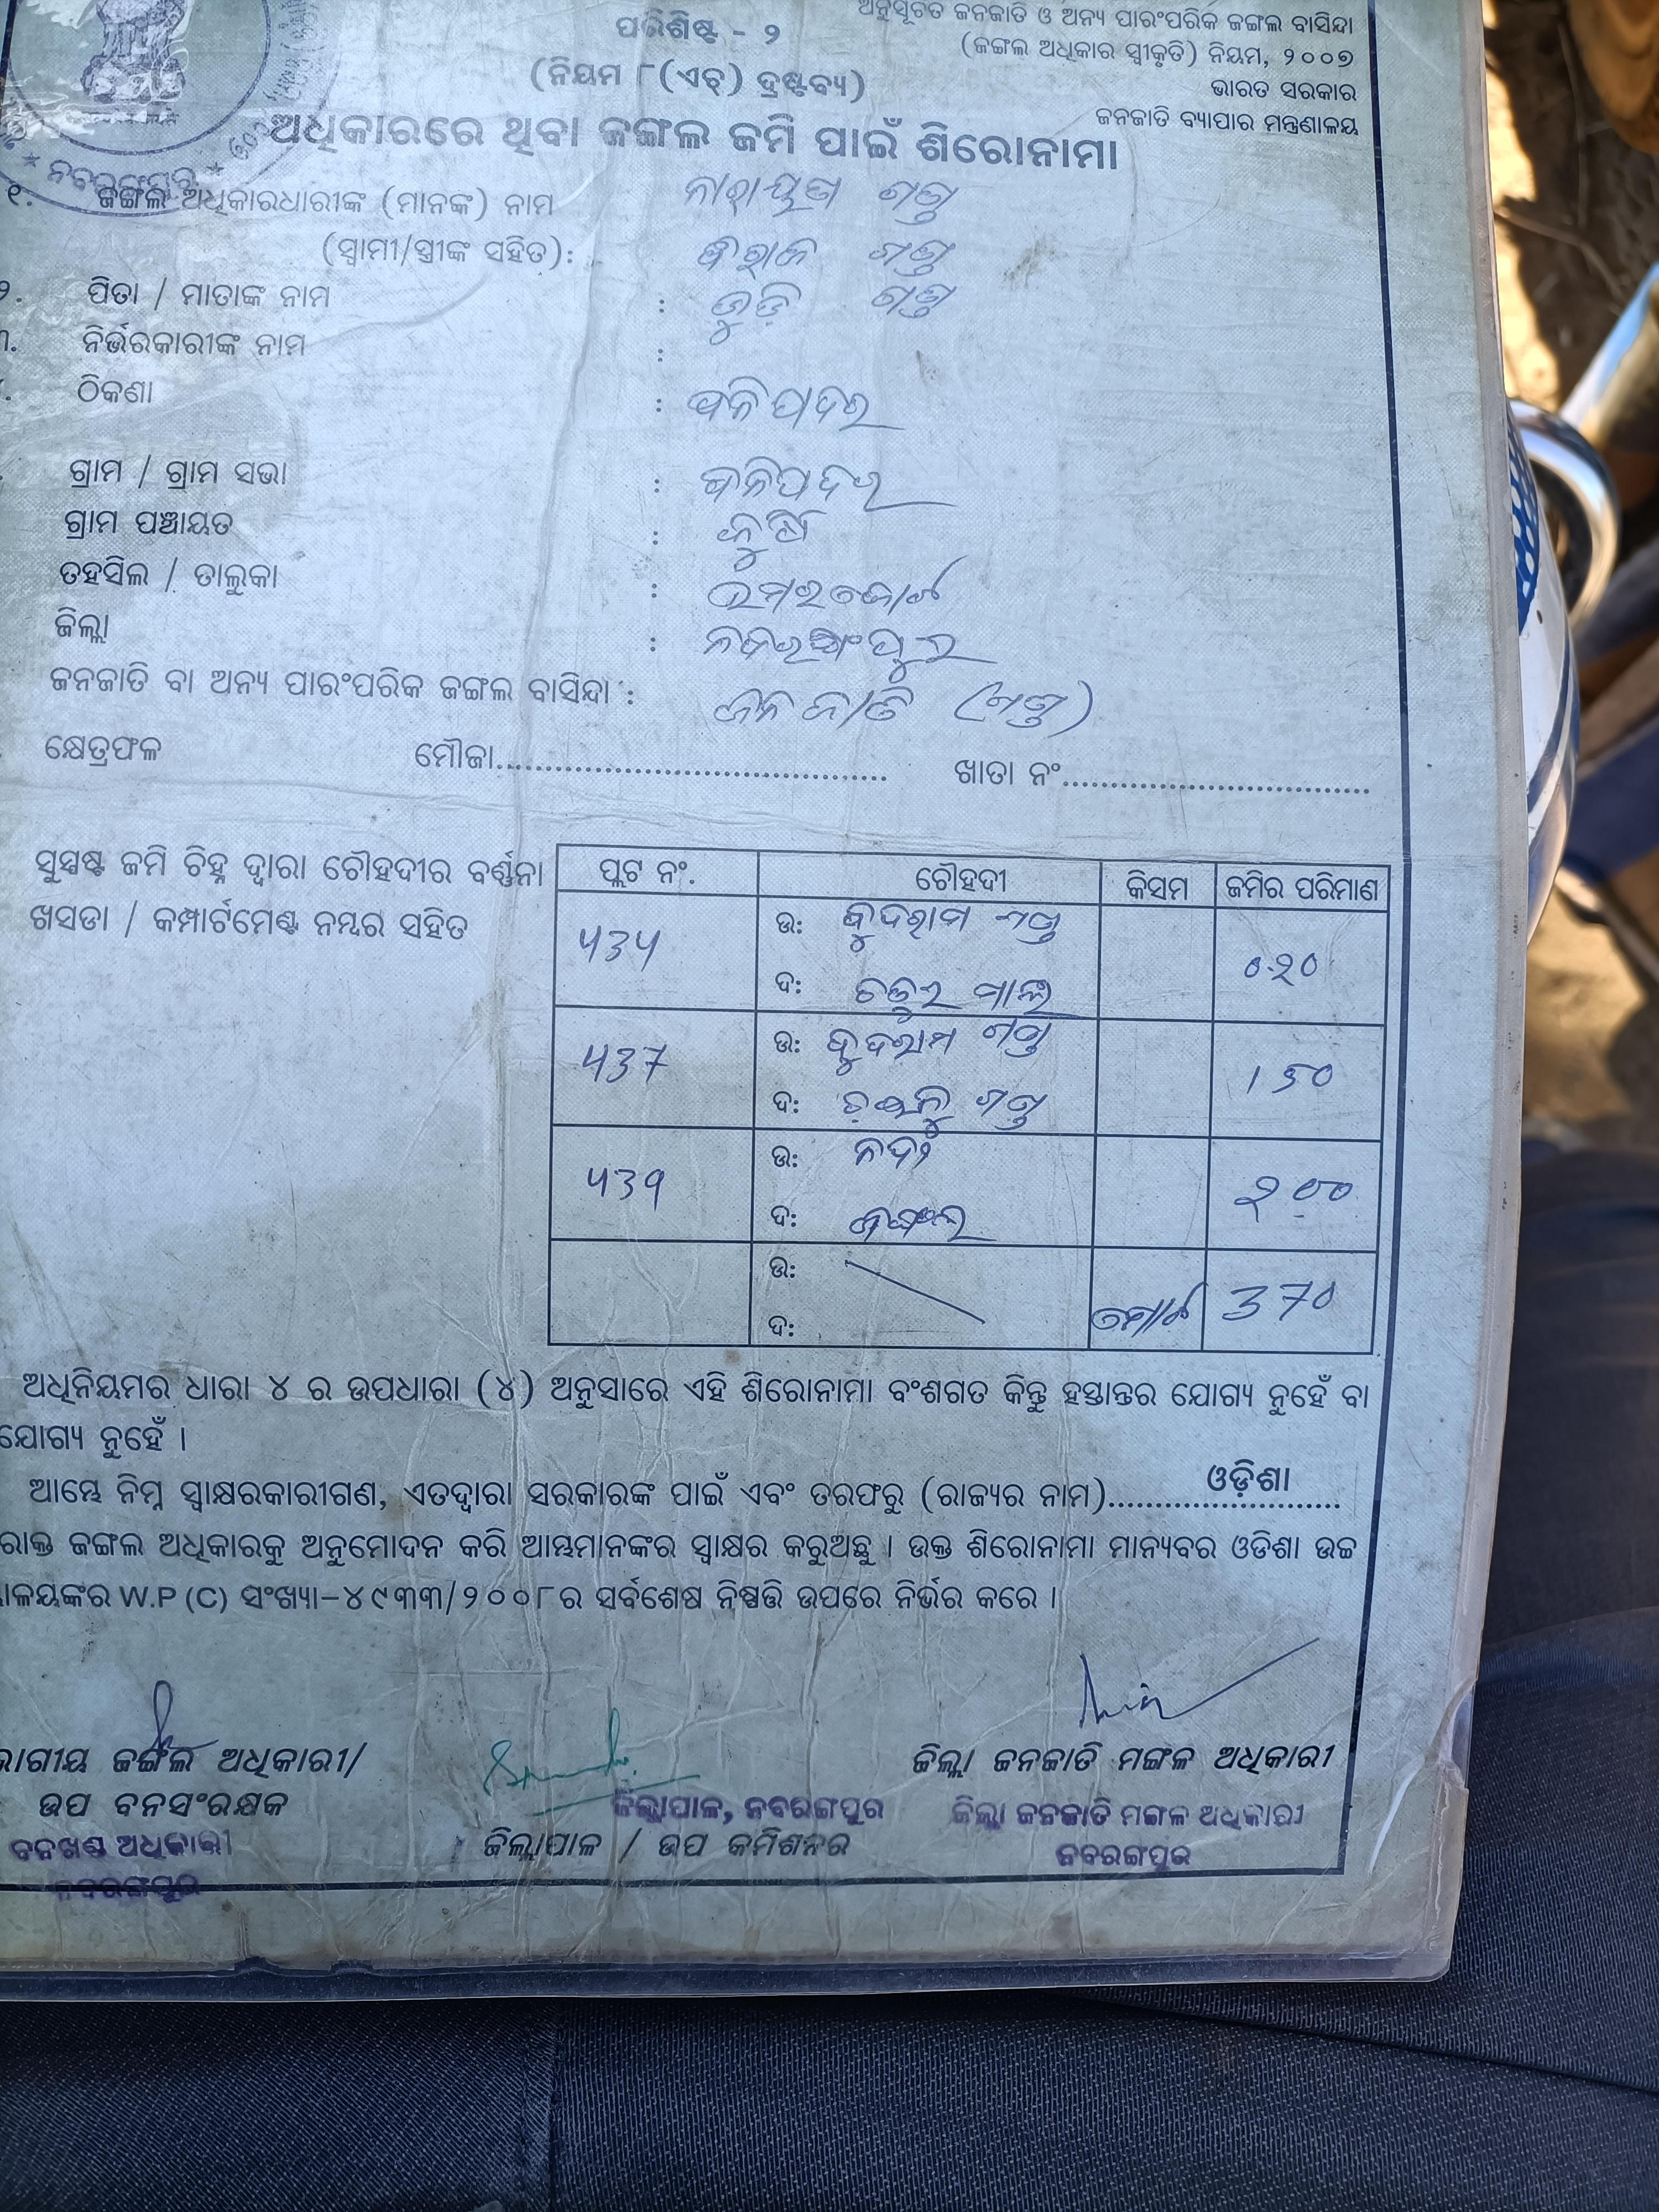 ପରିଶିଷ୍ଟ - ୨
(ନିୟମ ୮(ଏଚ୍) ଦ୍ରଷ୍ଟବ୍ୟ)
ଅନୁସୂଚିତ ଜନଜାତି ଓ ଅନ୍ୟ ପାରଂପରିକ ଜଙ୍ଗଲ ବାସିନ୍ଦା
(ଜଙ୍ଗଲ ଅଧିକାର ସ୍ୱୀକୃତି) ନିୟମ, ୨୦୦୭
ଭାରତ ସରକାର
ଜନଜାତି ବ୍ୟାପାର ମନ୍ତ୍ରଣାଳୟ
ଅଧିକାରରେ ଥିବା ଜଙ୍ଗଲ ଜମି ପାଇଁ ଶିରୋନାମା
୧. ଜଙ୍ଗଲ ଅଧିକାରଧାରୀଙ୍କ (ମାନଙ୍କ) ନାମ ନାରାୟଣ ଗଣ୍ଡ
(ସ୍ୱାମୀ/ସ୍ତ୍ରୀଙ୍କ ସହିତ): ଗଣ୍ଡ
୨. ପିତା / ମାତାଙ୍କ ନାମ : ଗଣ୍ଡ
୩. ନିର୍ଭରକାରୀଙ୍କ ନାମ :
ଠିକଣା : ବାଳିପଦର
ଗ୍ରାମ / ଗ୍ରାମ ସଭା : ବାଳିପଦର
ଗ୍ରାମ ପଞ୍ଚାୟତ :
ତହସିଲ / ତାଲୁକା : ଉମରକୋଟ
ଜିଲ୍ଲା : ନବରଙ୍ଗପୁର
ଜନଜାତି ବା ଅନ୍ୟ ପାରଂପରିକ ଜଙ୍ଗଲ ବାସିନ୍ଦା : ଜନଜାତି (ଗଣ୍ଡ)
କ୍ଷେତ୍ରଫଳ ମୌଜା........ ଖାତା ନଂ........
ସୁସ୍ପଷ୍ଟ ଜମି ଚିହ୍ନ ଦ୍ୱାରା ଚୌହଦୀର ବର୍ଣ୍ଣନା
ଖସଡା / କମ୍ପାର୍ଟମେଣ୍ଟ ନମ୍ବର ସହିତ
ପ୍ଲଟ ନଂ. ଚୌହଦୀ କିସମ ଜମିର ପରିମାଣ
ଉ: ବୁଦରାମ ଗଣ୍ଡ
435 0.20
ଦ: ଚତୁର
ଉ: ବୁଦରାମ ଗଣ୍ଡ
437 150
ଦ: ଗଣ୍ଡ
ଉ: ନଦୀ
439 ୨୦୦
ଦ: ଜଙ୍ଗଲ
ଉ:
ମୋଟ 370
ଦ:
ଅଧିନିୟମର ଧାରା ୪ ର ଉପଧାରା (୪) ଅନୁସାରେ ଏହି ଶିରୋନାମା ବଂଶଗତ କିନ୍ତୁ ହସ୍ତାନ୍ତର ଯୋଗ୍ୟ ନୁହେଁ ବା
ଯୋଗ୍ୟ ନୁହେଁ ।
ଆମ୍ଭେ ନିମ୍ନ ସ୍ୱାକ୍ଷରକାରୀଗଣ, ଏତଦ୍ୱାରା ସରକାରଙ୍କ ପାଇଁ ଏବଂ ତରଫରୁ (ରାଜ୍ୟର ନାମ)........ଓଡ଼ିଶା........
ରୋକ୍ତ ଜଙ୍ଗଲ ଅଧିକାରକୁ ଅନୁମୋଦନ କରି ଆମ୍ଭମାନଙ୍କର ସ୍ୱାକ୍ଷର କରୁଅଛୁ । ଉକ୍ତ ଶିରୋନାମା ମାନ୍ୟବର ଓଡିଶା ଉଚ୍ଚ
ାଳୟଙ୍କର W.P (C) ସଂଖ୍ୟା-୪୯୩୩/୨୦୦୮ର ସର୍ବଶେଷ ନିଷ୍ପତ୍ତି ଉପରେ ନିର୍ଭର କରେ ।
ଭାଗୀୟ ଜଙ୍ଗଲ ଅଧିକାରୀ/
ଉପ ବନସଂରକ୍ଷକ
ବନଖଣ୍ଡ ଅଧିକାରୀ
ନବରଙ୍ଗପୁର
ଜିଲ୍ଲାପାଳ, ନବରଙ୍ଗପୁର
ଜିଲ୍ଲାପାଳ / ଉପ କମିଶନର
ଜିଲ୍ଲା ଜନଜାତି ମଙ୍ଗଳ ଅଧିକାରୀ
ଜିଲ୍ଲା ଜନଜାତି ମଙ୍ଗଳ ଅଧିକାରୀ
ନବରଙ୍ଗପୁର